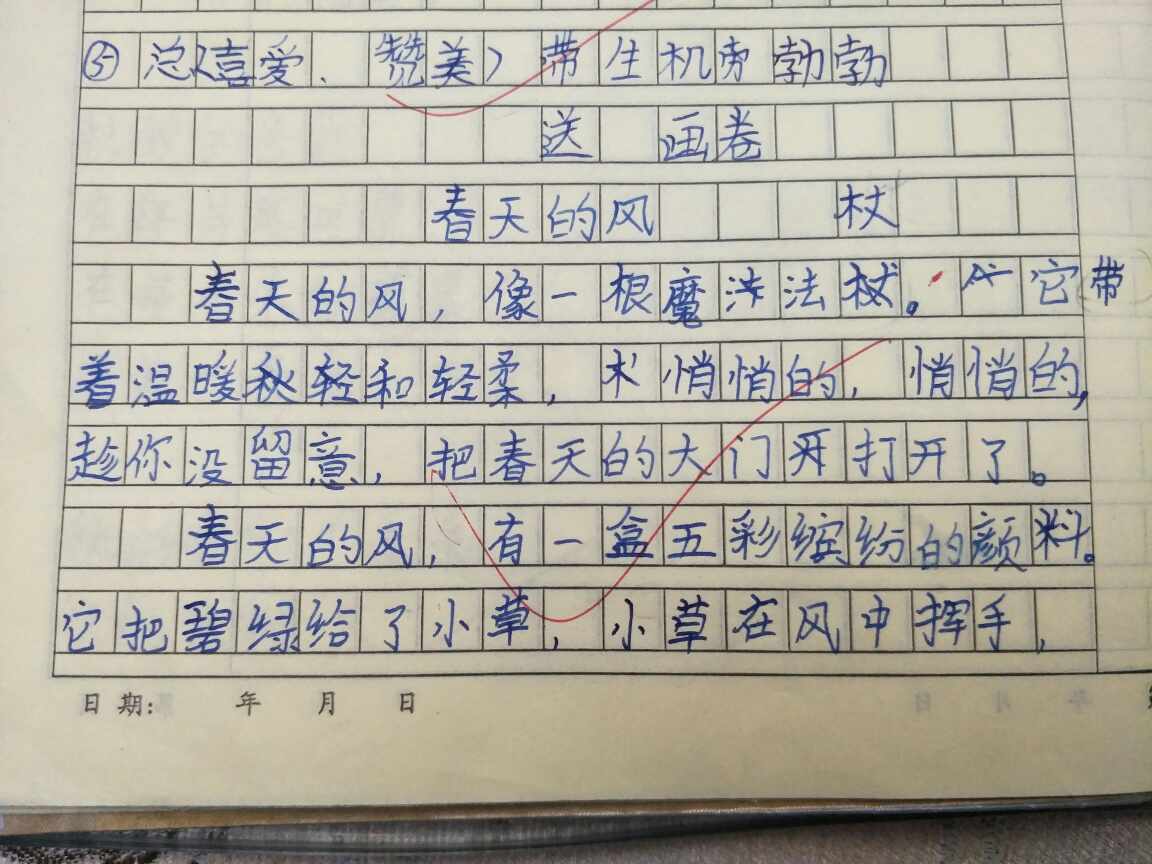 ⑤总（喜爱、赞美）带生机勃勃
送 画卷
春天的风 杖
春天的风，像一根魔法杖。它带
着温暖和轻柔，悄悄的，悄悄的，
趁你没留意，把春天的大门打开了。
春天的风，有一盒五彩缤纷的颜料。
它把碧绿给了小草，小草在风中挥手，
日期： 年 月 日